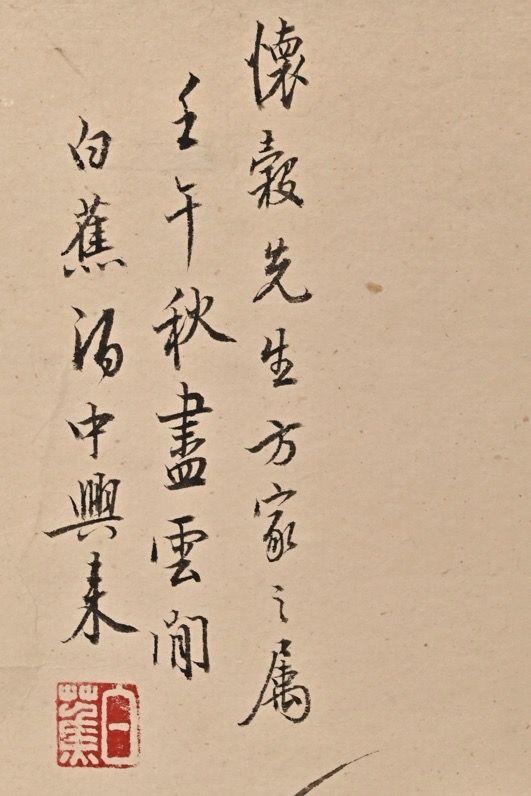 懷穀先生方家之属
壬午秋盡雲間
白蕉酒中興来
白蕉